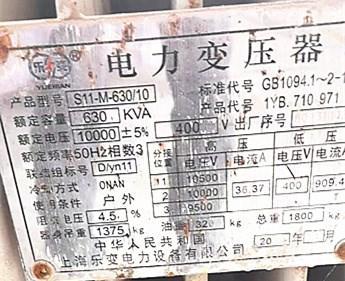 乐变
YUEBIAN
电力变压器
产品型号 S11-M-630/10 标准代号 GB1094.1~2-1
额定容量 630 KVA 产品代号 1YB.710 971
额定电压 10000±5% 400 V 出厂序号
额定频率50Hz相数3
联结组标号 D/yn11
冷却方式 ONAN
使用条件 户外
阻抗电压 4.5 %
器身吊重 1375 kg
油重 320 kg 总重 1800 kg
分接位置 高压 低压
电压V 电流A 电压V 电流A
1 10500
2 10000 36.37 400 909.4
3 9500
中华人民共和国
上海乐变电力设备有限公司 20 年